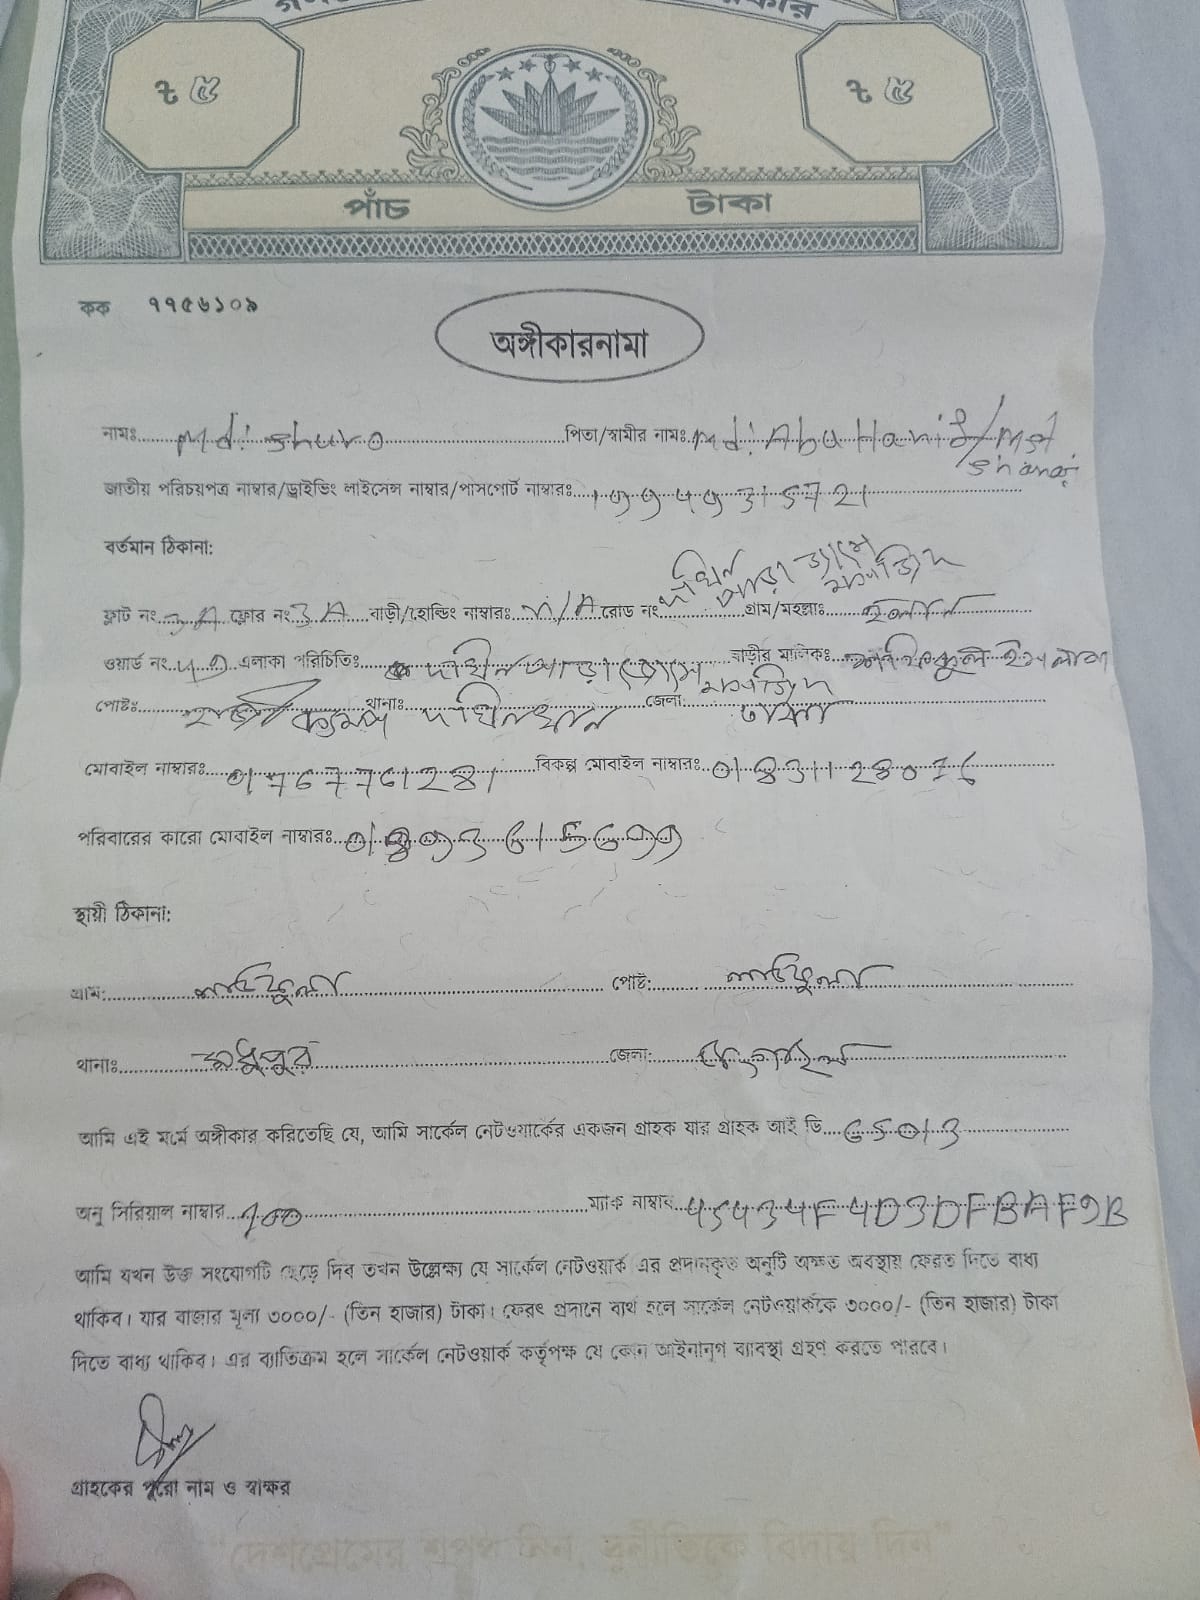 ৳ ৫ ৳ ৫
পাঁচ টাকা
কক ৭৭৫৬১০৯
অঙ্গীকারনামা
নামঃ Md: Shuvo পিতা/স্বামীর নামঃ Md: Abu Hanif/Mst
জাতীয় পরিচয়পত্র নাম্বার/ড্রাইভিং লাইসেন্স নাম্বার/পাসপোর্ট নাম্বারঃ
বর্তমান ঠিকানা:
দক্ষিন পাড়া জামে মসজিদ
ফ্লাট নং 3A ফ্লোর নং 3A বাড়ী/হোল্ডিং নাম্বারঃ N/A রোড নং গ্রাম/মহল্লাঃ
ওয়ার্ড নং এলাকা পরিচিতিঃ দক্ষিন পাড়া জামে মসজিদ বাড়ীর মালিকঃ
পোষ্টঃ হাজী ক্যাম্প থানাঃ দক্ষিনখান জেলা: ঢাকা
মোবাইল নাম্বারঃ 01767761281 বিকল্প মোবাইল নাম্বারঃ
পরিবারের কারো মোবাইল নাম্বারঃ
স্থায়ী ঠিকানা:
গ্রাম: লাউফুলা পোষ্ট: লাউফুলা
থানাঃ মধুপুর জেলা: টাংগাইল
আমি এই মর্মে অঙ্গীকার করিতেছি যে, আমি সার্কেল নেটওয়ার্কের একজন গ্রাহক যার গ্রাহক আই ডি
অনু সিরিয়াল নাম্বার ম্যাক নাম্বার 45434F4D3DFBAF9B
আমি যখন উক্ত সংযোগটি ছেড়ে দিব তখন উল্লেক্ষ্য যে সার্কেল নেটওয়ার্ক এর প্রদানকৃত অনুটি অক্ষত অবস্থায় ফেরত দিতে বাধ্য
থাকিব। যার বাজার মূল্য ৩০০০/- (তিন হাজার) টাকা। ফেরৎ প্রদানে ব্যর্থ হলে সার্কেল নেটওয়ার্ককে ৩০০০/- (তিন হাজার) টাকা
দিতে বাধ্য থাকিব। এর ব্যাতিক্রম হলে সার্কেল নেটওয়ার্ক কর্তৃপক্ষ যে কোন আইনানুগ ব্যাবস্থা গ্রহণ করতে পারবে।
গ্রাহকের পুরো নাম ও স্বাক্ষর
"দেশপ্রেমের শপথ নিন, দুর্নীতিকে বিদায় দিন"